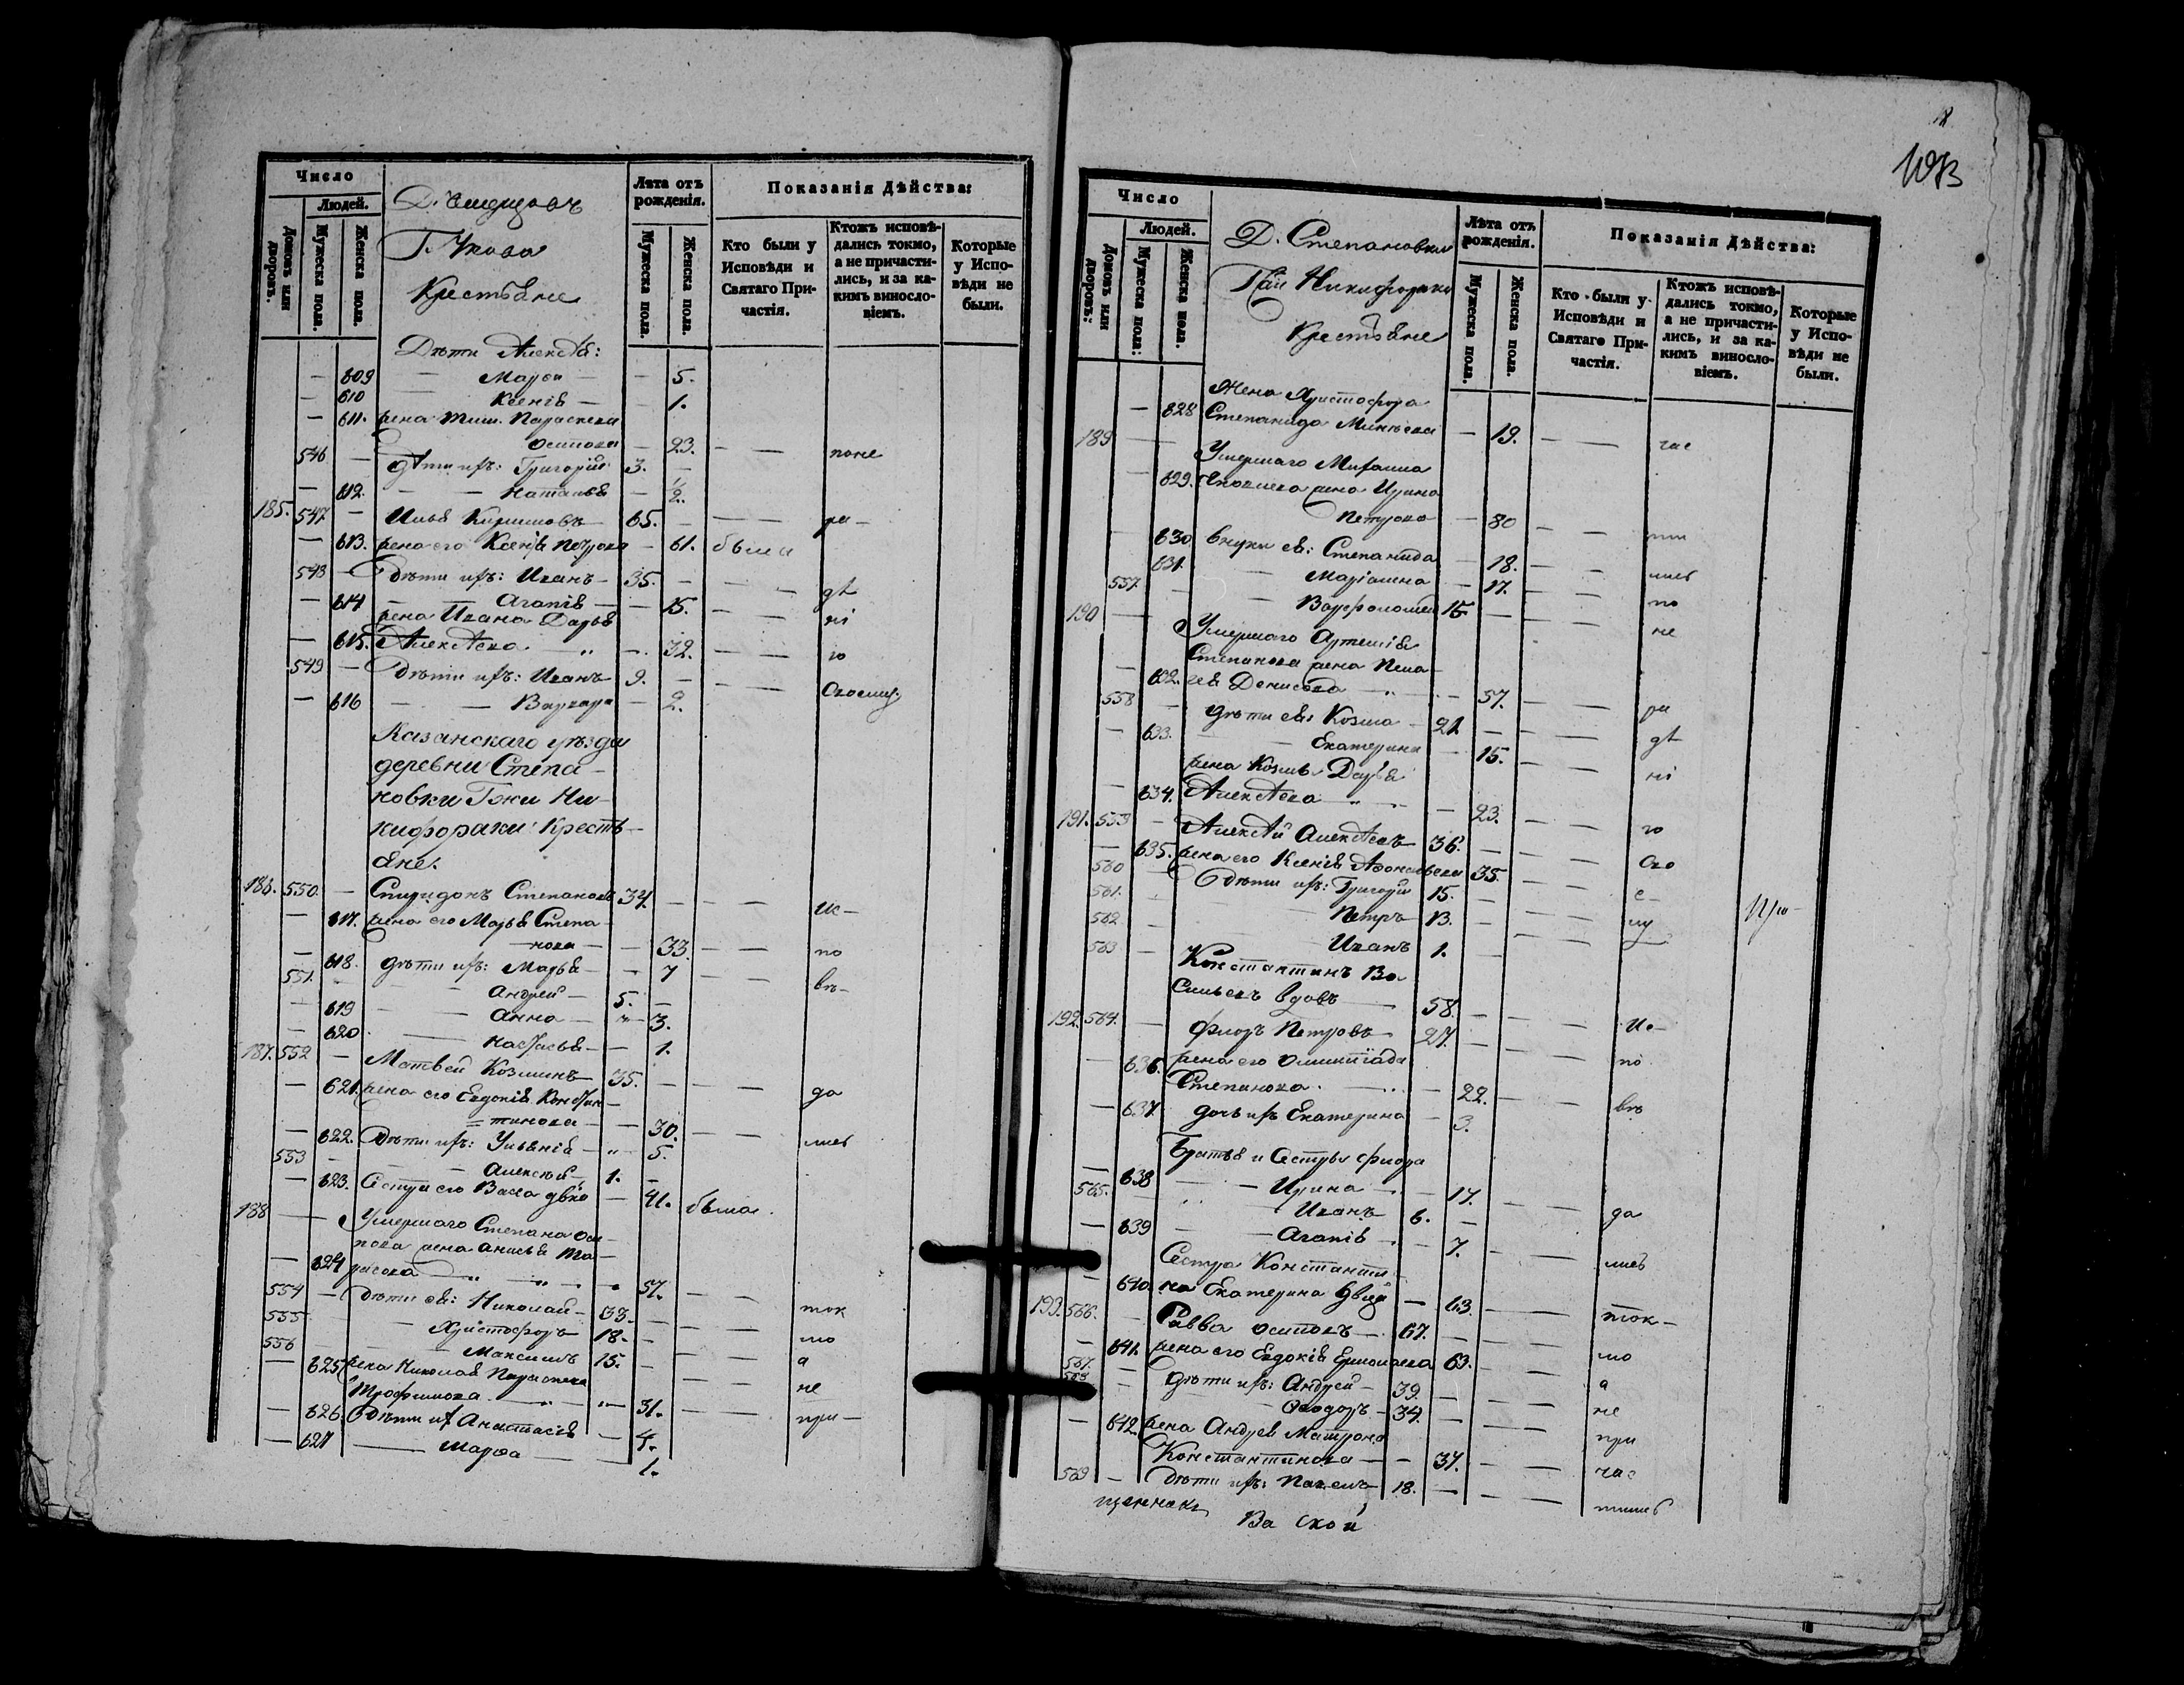 Число
Людей.
Домовъ или дворовъ.
Мужеска пола.
Женска пола.
Г. Укова
Крестьяне
Лѣта отъ рожденія.
Мужеска пола.
Женска пола.
Показанія Дѣйства:
Кто были у Исповѣди и Святаго Причастія.
Ктожъ исповѣдались токмо, а не причастились, и за какимъ винословіемъ.
Которые у Исповѣди не были.
Дѣти Алексѣя:
— 609 — Марѳа — — 5.
— 610 Ксенія — — 1.
— 611. жена Тим. Параскева
Осипова — 23. — — поне
546 — дѣти ихъ: Григорій 3. —
— 612. — — Наталья — 1/2.
185. 547 — Илья Кириловъ 65. — — — ра-
— 613. жена его Ксенія Петрова — 61. была
548 — Дѣти ихъ: Иванъ — 35. — — — дѣ
— 614 — — Агапія — — 15. — — ні
жена Ивана Дарья
— 615. Алексѣева — „ — 32. — — ю
549 — Дѣти ихъ: Иванъ 9. — — —
— 616 — — Варвара — 2.
Казанскаго уѣзда
деревни Степа-
новки Гжи Ни-
кифораки Кресть-
яне.
186. 550. — Спиридонъ Степановъ 34. — — — Ис-
— 617. жена его Марья Степа-
нова — — 33. — — по
— 618. дѣти ихъ: Марья — — 7 — — вѣ-
551. — — — Андрей — 5. —
— 619 — — Анна — „ 3.
— 620. — Настасья — — 1.
187. 552 — Матвей Козминъ 35. — — — да
— 621. жена его Евдокія Констан-
тинова — — 30. — — лись
— 622. Дѣти ихъ: Ульянія — „ 5.
553 — — — Алексѣй — 1. —
— 623. Сестра его Васса дѣвка — 41. была.
188 — — Умершаго Степана Оси-
пова жена Анисья Та-
— 624 расова — „ — „ 57. — — ток
554 — Дѣти ея: Николай — 33. — — — мо
555 — Христофоръ 18. — — — а
556 — Максимъ 15. — — — не
— 625 жена Николая Параскева
Трофимова — „ — „ — 31. — — при-
— 626. Дѣти их Анастасія — 4.
— 627 — Марѳа — — 1.
1073
Число
Людей.
Домовъ или дворовъ.
Мужеска пола.
Женска пола.
Д. Степановки
Гжи Никифораки
Крестьяне
Лѣта отъ рожденія.
Мужеска пола.
Женска пола.
Показанія Дѣйства:
Кто были у Исповѣди и Святаго Причастія.
Ктожъ исповѣдались токмо, а не причастились, и за какимъ винословіемъ.
Которые у Исповѣди не были.
Жена Христофора
— 628 Степанида Минѣева — 19. — — час
189 — — Умершаго Михаила
— 629. Яковлева жена Ирина
Петрова — 80 — — ти
630 внуки ея: Степанида — 18. — — лись
631. — Маріамна — 17. — — по
557. — — Варфоломей 15 — — — не
190 — Умершаго Артемія
Степанова жена Пела-
— 632. гея Денисова — „ — 57. — — ра
558 — дѣти ея: Козма — 21. — — — дѣ
— 633. — Екатерина — 15. — — ні
жена Козмы Дарья
— 634. Алексѣева — „ — — 23. — — ю
191. 559 — Алексѣй Алексѣевъ 36. — — — Сво
— 635. жена его Ксенія Аѳонасьева 35. — — е-
560 — Дѣти ихъ: Григорій 15. — — — му
561. — Петръ 13. — — —
562 — Иванъ 1. —
563 — Константинъ Ва-
сильевъ вдовъ — 58. — — — Ис-
192. 564. — Флоръ Петровъ — 27. — — — по
— 636. жена его Олимпіада
Степанова. — — 22. — — вѣ
— 637. дочь ихъ Екатерина — 3.
Братья и Сестры Флора
— 638 — — Ирина — — 17. — — да
565. — Иванъ 6. —
— 639 — Агапія — — 7. — — лись
Сестра Константи-
— 640. на Екатерина вдова — 43. — — ток-
193. 566. — Савва Осиповъ — 67. — — — мо
— 641. жена его Евдокія Ермолаева 63. — — а
567. — дѣти ихъ: Андрей — 39. — — — не
568 — Ѳеодоръ — 34. — — — при
— 642. жена Андрея Матрона
Константинова — — 37. — — час
569 — Дѣти ихъ: Павелъ 18. — — — тились
щенникъ Ва ской